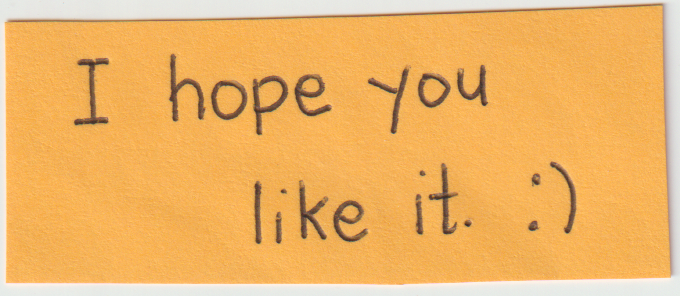 I hope you
like it. :)